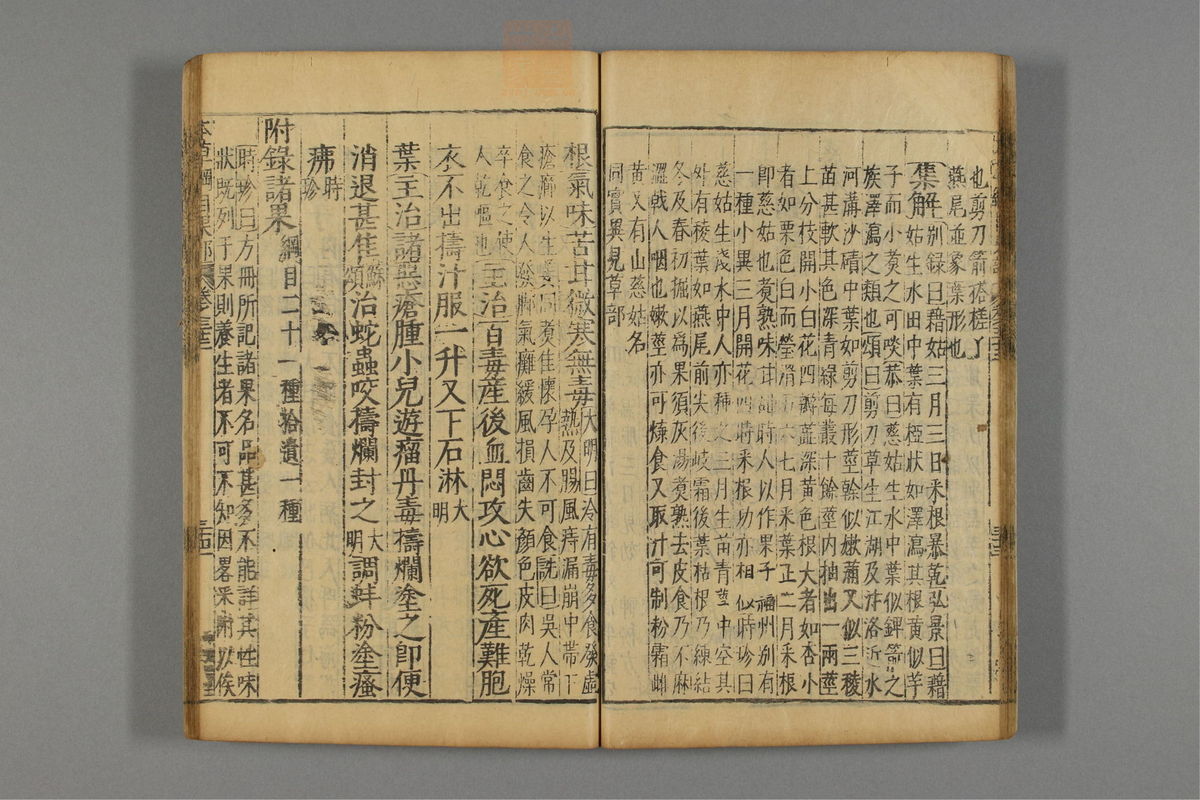 也剪刀箭搭槎丫
燕尾並象葉形也
集解别録曰藉姑三月三日采根暴乾弘景曰藉
姑生水田中葉有椏狀如澤瀉其根黄似芋
子而小煑之可啖恭曰慈姑生水中葉似錍箭之
族澤瀉之類也頌曰剪刀草生江湖及汴洛近水
河溝沙磧中葉如剪刀形莖幹似嫩蒲又似三稜
苗甚軟其色深青綠每叢十餘莖内抽出一兩莖
上分枝開小白花四瓣蕊深黄色根大者如杏小
者如栗色白而瑩滑五六七月采葉正二月采根
卽慈姑也煑熟味甘甜時人以作果子福州别有
一種小異三月開花四時采根功亦相似時珍曰
慈姑生淺水中人亦種之三月生苗青莖中空其
外有稜葉如燕尾前尖後岐霜後葉枯根乃練結
冬及春初掘以爲果須灰湯煑熟去皮食乃不麻
澀戟人咽也嫩莖亦可煠食又取汁可制粉霜雌
黄又有山慈姑名
同實異見草部
根氣味苦甘微寒無毒大明曰冷有毒多食發虚
熱及腸風痔漏崩中帶下
瘡癤以生薑同煑佳懷孕人不可食詵曰吳人常
食之令人發脚氣癱緩風損齒失顔色皮肉乾燥
卒食之使
人乾嘔也主治百毒産後血悶攻心欲死産難胞
衣不出擣汁服一升又下石淋大
明
葉主治諸惡瘡腫小兒遊瘤丹毒擣爛塗之卽便
消退甚佳蘇
頌治蛇蟲咬擣爛封之大
明調蚌粉塗瘙
疿時
珍
附錄諸果綱目二十一種拾遺一種
時珍曰方冊所記諸果名品甚多不能詳其性味
狀既列于果則養生者不可不知因畧采附以俟